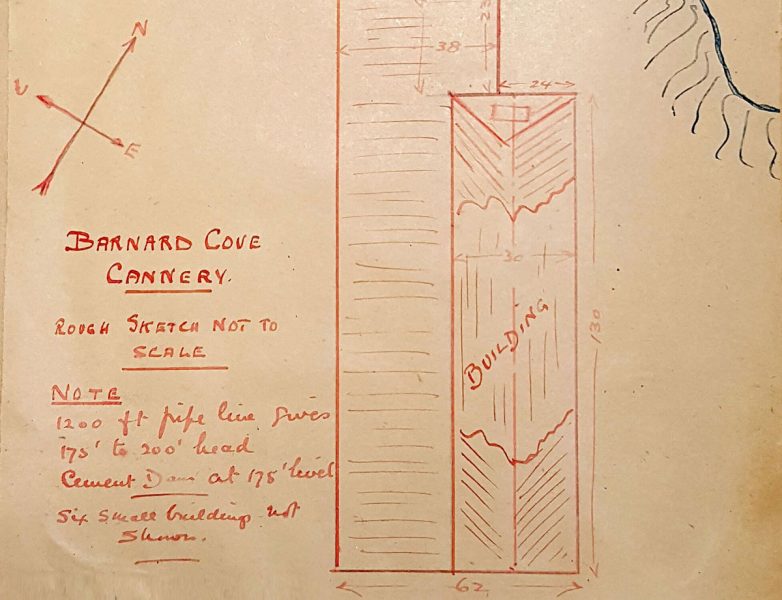 N
W
E
23
38
24
BARNARD COVE
CANNERY.
ROUGH SKETCH NOT TO
SCALE
NOTE
1200 ft pipe line gives
175' to 200' head
Cement Dam at 175' level
Six small buildings not
shown.
30
BUILDING
130
62